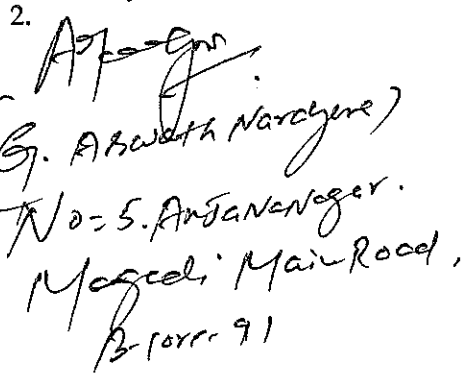 2.
G. Aswath Narayana)
No=5. AnJaNaNagar.
Magadi Main Road,
B-lore-91